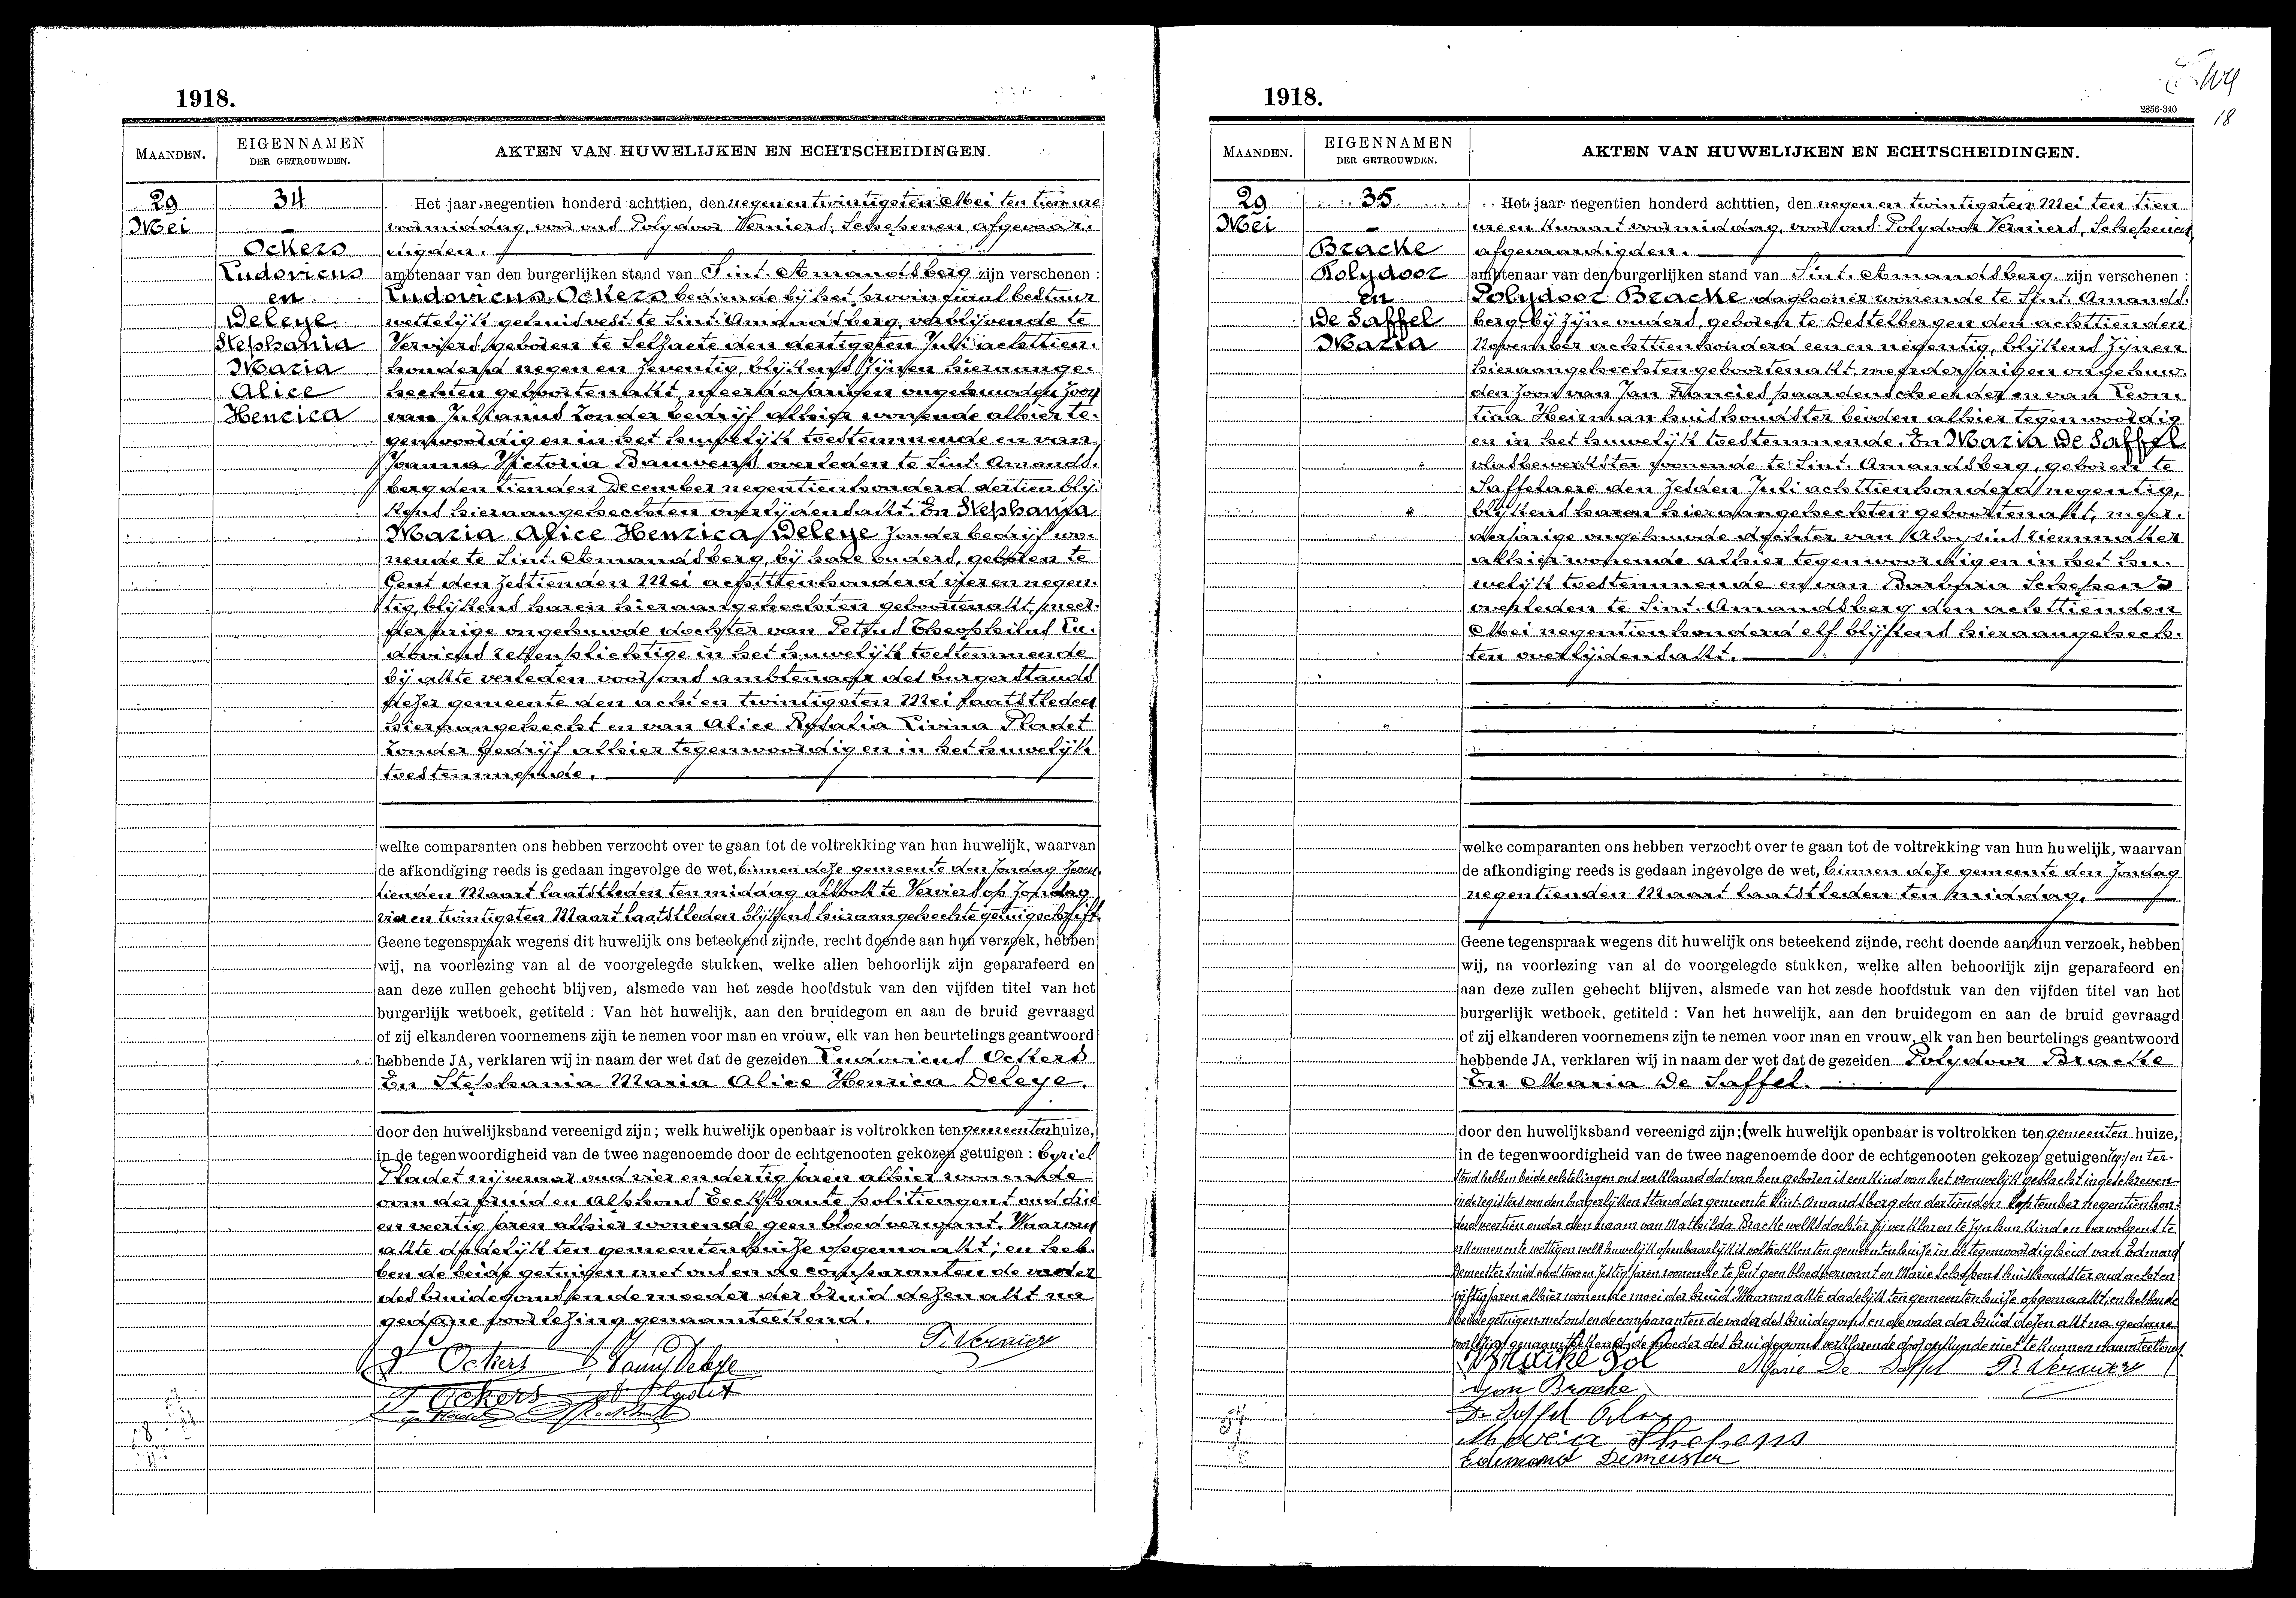 1918.
MAANDEN.
EIGENNAMEN
DER GETROUWDEN.
AKTEN VAN HUWELIJKEN EN ECHTSCHEIDINGEN.
29
Mei
34
Ockers
Ludovicus
en
Deleye
Stephania
Maria
Alice
Henrica
Het jaar negentien honderd achttien, den negen en twintigsten Mei ten tien ure
voormiddag, voor ons Polydoor Verniers, Schepenen afgevaar-
digden.
ambtenaar van den burgerlijken stand van Sint. Amandsberg zijn verschenen :
Ludovicus Ockers bediende bij het provinciaal bestuur
wettelijk gehuisvest te Sint. Amandsberg, verblijvende te
Verviers, geboren te Selzaete den dertigsten Juli achttien-
honderd negen en zeventig, blijkens zijnen hieraange-
hechten geboortenakt, meerderjarigen ongehuwden zoon
van Julianus zonder bedrijf alhier wonende alhier te-
genwoordig en in het huwelijk toestemmende en van
Joanna Victoria Bauwens overleden te Sint. Amands-
berg den tienden December negentienhonderd dertien blij-
kens hieraangehechten overlijdensakt. En Stephania
Maria Alice Henrica Deleye zonder bedrijf wo-
nende te Sint. Amandsberg, bij hare ouders, geboren te
Gent den zestienden Mei achttienhonderd vier en negen-
tig, blijkens haren hieraangehechten geboortenakt, meer-
derjarige ongehuwde dochter van Petrus Theophilus Lu-
dovicus rellenplichtige in het huwelijk toestemmende
bij akte verleden voor ons ambtenaar des burgerstands
dezer gemeente den acht en twintigsten Mei laatstleden
hieraangehecht en van Alice Rosalia Livina Pladet
zonder bedrijf alhier tegenwoordig en in het huwelijk
toestemmende.
welke comparanten ons hebben verzocht over te gaan tot de voltrekking van hun huwelijk, waarvan
de afkondiging reeds is gedaan ingevolge de wet, binnen deze gemeente den zondag zeven
tienden Maart laatstleden ten middag alsook te Verviers op zondag
vier en twintigsten Maart laatstleden blijkens hieraangehechte getuigschrift
Geene tegenspraak wegens dit huwelijk ons beteekend zijnde, recht doende aan hun verzoek, hebben
wij, na voorlezing van al de voorgelegde stukken, welke allen behoorlijk zijn geparafeerd en
aan deze zullen gehecht blijven, alsmede van het zesde hoofdstuk van den vijfden titel van het
burgerlijk wetboek, getiteld : Van het huwelijk, aan den bruidegom en aan de bruid gevraagd
of zij elkanderen voornemens zijn te nemen voor man en vrouw, elk van hen beurtelings geantwoord
hebbende JA, verklaren wij in naam der wet dat de gezeiden Ludovicus Ockers
En Stephania Maria Alice Henrica Deleye.
door den huwelijksband vereenigd zijn; welk huwelijk openbaar is voltrokken ten gemeentenhuize,
in de tegenwoordigheid van de twee nagenoemde door de echtgenooten gekozen getuigen : Cyriel
Pladet nijveraar oud vier en dertig jaren alhier wonende
oom der bruid en Alphons Eeckhaute politieagent oud drie
en veertig jaren alhier wonende geen bloedverwant. Waarvan
akte dadelijk ten gemeentenhuize opgemaakt; en heb-
ben de beide getuigen met ons en de comparanten de vader
des bruidegoms en de moeder der bruid dezen akt na
gedane voorlezing genaamteekend.
P. Verniers
Ockers Fanny Deleye
Ockers A. Pladet
1918.
2856-340
18
MAANDEN.
EIGENNAMEN
DER GETROUWDEN.
AKTEN VAN HUWELIJKEN EN ECHTSCHEIDINGEN.
29
Mei
35
Bracke
Polydoor
en
De Saffel
Maria
Het jaar negentien honderd achttien, den negen en twintigsten Mei ten tien
ure en kwaart voormiddag, voor ons Polydoor Verniers, Schepenen
afgevaardigden.
ambtenaar van den burgerlijken stand van Sint. Amandsberg zijn verschenen :
Polydoor Bracke daglooner wonende te Sint. Amands-
berg bij zijne ouders, geboren te Destelbergen den achttienden
November achttienhonderd een en negentig, blijkens zijnen
hieraangehechten geboortenakt meerderjarigen ongehuw-
den zoon van Jan Francies paardenscheerder en van Leon-
tina Heirman huishoudster beiden alhier tegenwoordig
en in het huwelijk toestemmende. En Maria De Saffel
vlasbewerkster wonende te Sint. Amandsberg, geboren te
Saffelaere den zesden Juli achttienhonderd negentig,
blijkens haren hieraangehechten geboortenakt, meer-
derjarige ongehuwde dochter van Aloysius riemmaker
alhier wonende alhier tegenwoordig en in het hu-
welijk toestemmende en van Barbara Schepens
overleden te Sint. Amandsberg den achttienden
Mei negentienhonderd elf blijkens hieraangehech-
ten overlijdensakt.
welke comparanten ons hebben verzocht over te gaan tot de voltrekking van hun huwelijk, waarvan
de afkondiging reeds is gedaan ingevolge de wet, binnen deze gemeente den zondag
negentienden Maart laatstleden ten middag.
Geene tegenspraak wegens dit huwelijk ons beteekend zijnde, recht doende aan hun verzoek, hebben
wij, na voorlezing van al de voorgelegde stukken, welke allen behoorlijk zijn geparafeerd en
aan deze zullen gehecht blijven, alsmede van het zesde hoofdstuk van den vijfden titel van het
burgerlijk wetboek, getiteld : Van het huwelijk, aan den bruidegom en aan de bruid gevraagd
of zij elkanderen voornemens zijn te nemen voor man en vrouw, elk van hen beurtelings geantwoord
hebbende JA, verklaren wij in naam der wet dat de gezeiden Polydoor Bracke
En Maria De Saffel.
door den huwelijksband vereenigd zijn; (welk huwelijk openbaar is voltrokken ten gemeenten huize,
in de tegenwoordigheid van de twee nagenoemde door de echtgenooten gekozen getuigen en ter-
stond hebben beide echtelingen ons verklaard dat van hen geboren is een kind van het vrouwelijk geslacht ingeschreven
in de registers van den burgerlijken Stand der gemeente Sint. Amandsberg den dertienden September negentienhon-
derd veertien onder den naam van Mathilda Bracke welks dochter zij verklaren te zijn hun kind en vervolgens te
erkennen en te wettigen welk huwelijk openbaarlijk is voltrokken ten gemeentenhuize in de tegenwoordigheid van Edmond
Demeester smid oud twee en zestig jaren wonende te Gent geen bloedverwant en Marie Schepens huishoudster oud acht en
vijftig jaren alhier wonende moei der bruid Waarvan akte dadelijk ten gemeentenhuize opgemaakt; en hebben de
beide getuigen met ons en de comparanten de vader des bruidegoms en de vader der bruid dezen akt na gedane
voorlezing genaamteekend de moeder des bruidegoms verklarende door onkunde niet te kunnen naamteekenen.
Bracke Pol Marie De Saffel P. Verniers
Jan Bracke
De Saffel
Maria Schepens
Edimond Demeester